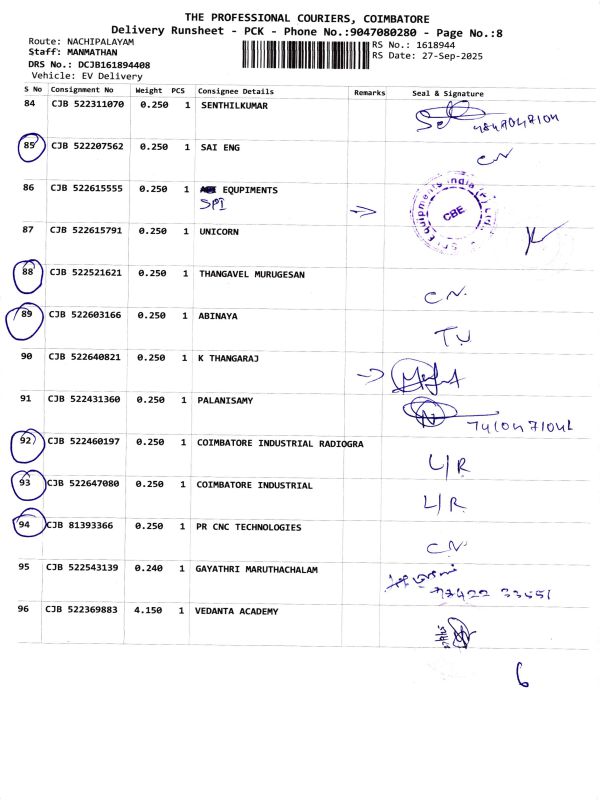 THE PROFESSIONAL COURIERS, COIMBATORE
Delivery Runsheet - PCK - Phone No.:9047080280 - Page No.:8
Route: NACHIPALAYAM
RS No.: 1618944
Staff: MANMATHAN
RS Date: 27-Sep-2025
DRS No.: DCJB161894408
Vehicle: EV Delivery
S No Consignment No Weight PCS Consignee Details Remarks Seal & Signature
84 CJB 522311070 0.250 1 SENTHILKUMAR
85 CJB 522207562 0.250 1 SAI ENG CN
86 CJB 522615555 0.250 1 EQUPIMENTS
SPI
CBE
87 CJB 522615791 0.250 1 UNICORN
88 CJB 522521621 0.250 1 THANGAVEL MURUGESAN CN.
89 CJB 522603166 0.250 1 ABINAYA
90 CJB 522640821 0.250 1 K THANGARAJ
91 CJB 522431360 0.250 1 PALANISAMY
92 CJB 522460197 0.250 1 COIMBATORE INDUSTRIAL RADIOGRA L/R
93 CJB 522647080 0.250 1 COIMBATORE INDUSTRIAL L/R
94 CJB 81393366 0.250 1 PR CNC TECHNOLOGIES CN
95 CJB 522543139 0.240 1 GAYATHRI MARUTHACHALAM
96 CJB 522369883 4.150 1 VEDANTA ACADEMY
6